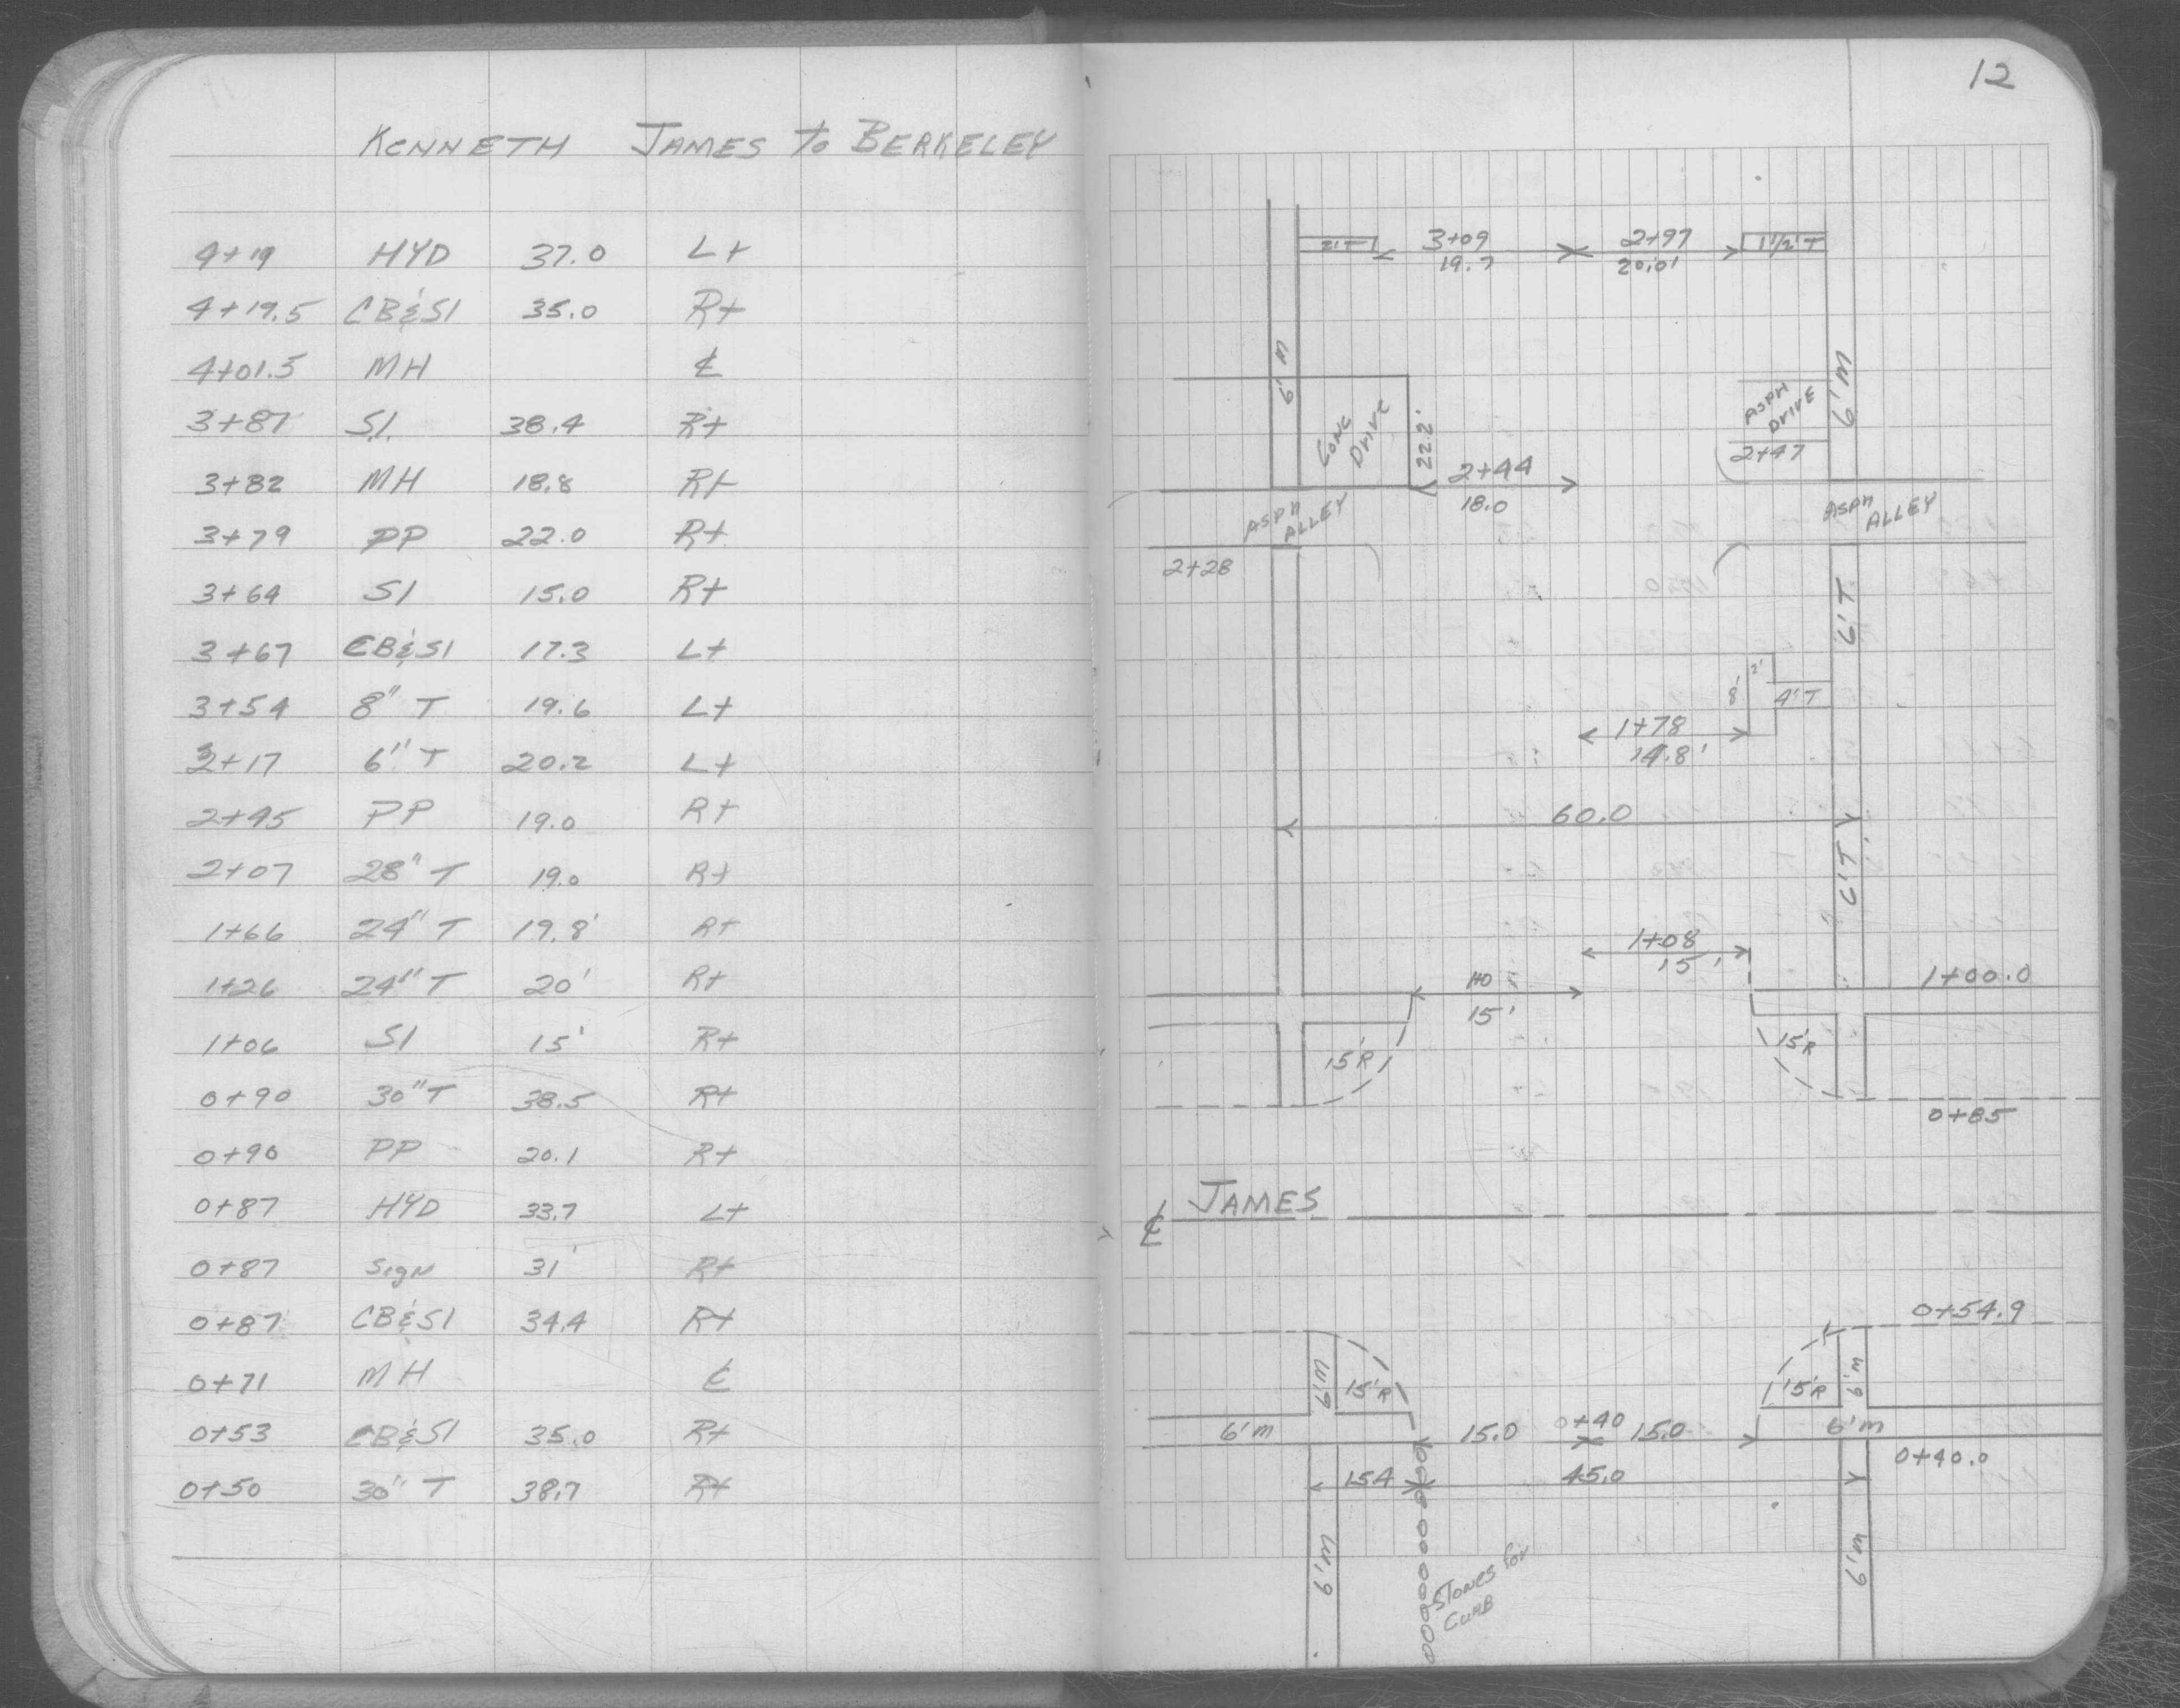 KENNETH JAMES to BERKELEY
4+19 HYD 37.0 Lt
4+19.5 CB&SI 35.0 Rt
4+01.5 MH ℄
3+87 S.I. 38.4 Rt
3+82 MH 18.8 Rt
3+79 PP 22.0 Rt
3+64 SI 15.0 Rt
3+67 CB&SI 17.3 Lt
3+54 8" T 19.6 Lt
3+17 6" T 20.2 Lt
2+95 PP 19.0 Rt
2+07 28" T 19.0 Rt
1+66 24" T 19.8' Rt
1+26 24" T 20' Rt
1+06 SI 15' Rt
0+90 30" T 38.5 Rt
0+90 PP 20.1 Rt
0+87 HYD 33.7 Lt
0+87 Sign 31' Rt
0+87 CB&SI 34.4 Rt
0+71 MH ℄
0+53 CB&SI 35.0 Rt
0+50 30" T 38.7 Rt
12
2'T 3+09 2+97 1 1/2'T
19.7 20.0'
6'M 6'M
CONC DRIVE
22.2'
ASPH DRIVE
2+47
2+44
18.0
ASPH ALLEY
ASPH ALLEY
2+28
6'T
2'
8' 4'T
1+78
14.8'
60.0
6'T
1+08
15'
1+00.0
15'
15'R 15'R
0+85
℄ JAMES
0+54.9
6'M 15'R 15'R 6'M
6'M 15.0 0+40 15.0 6'M
0+40.0
15.4 45.0
6'M 6'M
STONES for
CURB